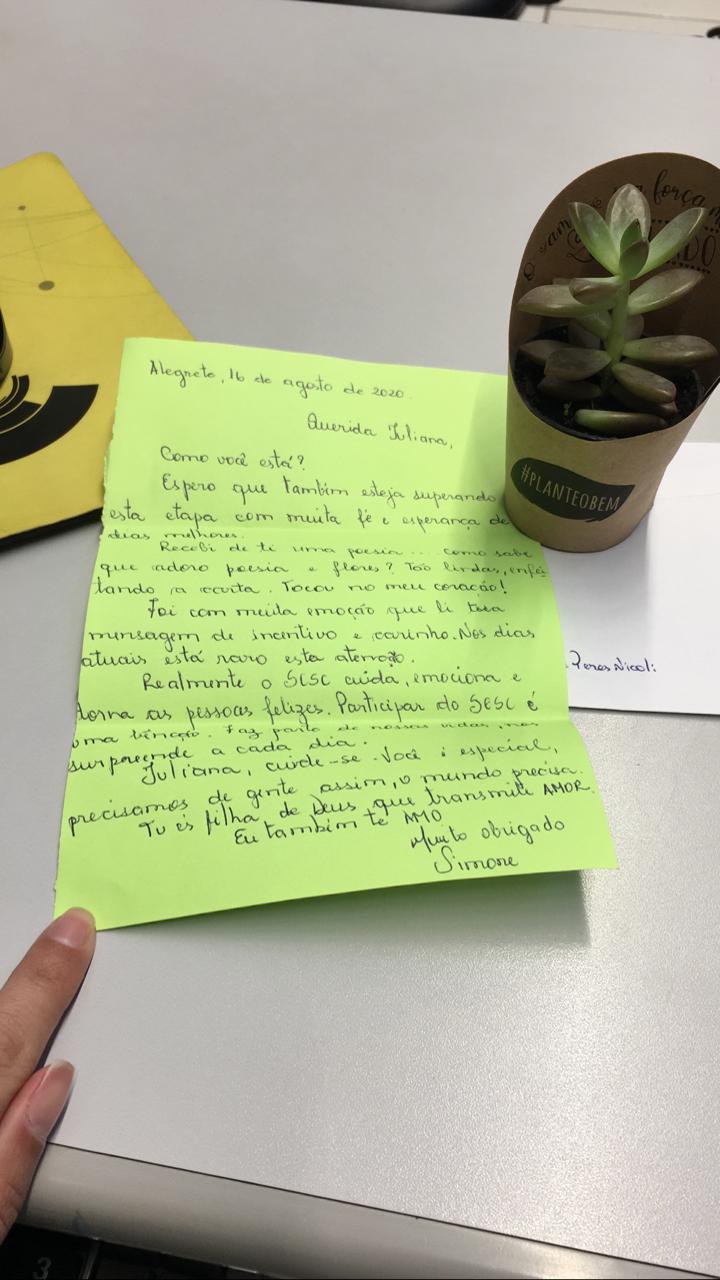 Alegrete, 16 de agosto de 2020.
Querida Juliana,
Como você está?
Espero que também esteja superando
esta etapa com muita fé e esperança de
dias melhores.
Recebi de ti uma poesia... como sabe
que adoro poesia e flores? Tão lindas, enfei
tando a carta. Tocou no meu coração!
Foi com muita emoção que li tua
mensagem de incentivo e carinho. Nos dias
atuais está raro esta atenção.
Realmente o SESC cuida, emociona e
torna as pessoas felizes. Participar do SESC é
uma bênção. Faz parte de nossas vidas, nos
surpreende a cada dia.
Juliana, cuide-se. Você é especial,
precisamos de gente assim, o mundo precisa.
Tu és filha de Deus que transmite AMOR.
Eu também te AMO
Muito obrigado
Simone
força
#PLANTEOBEM
Peres Nicoli